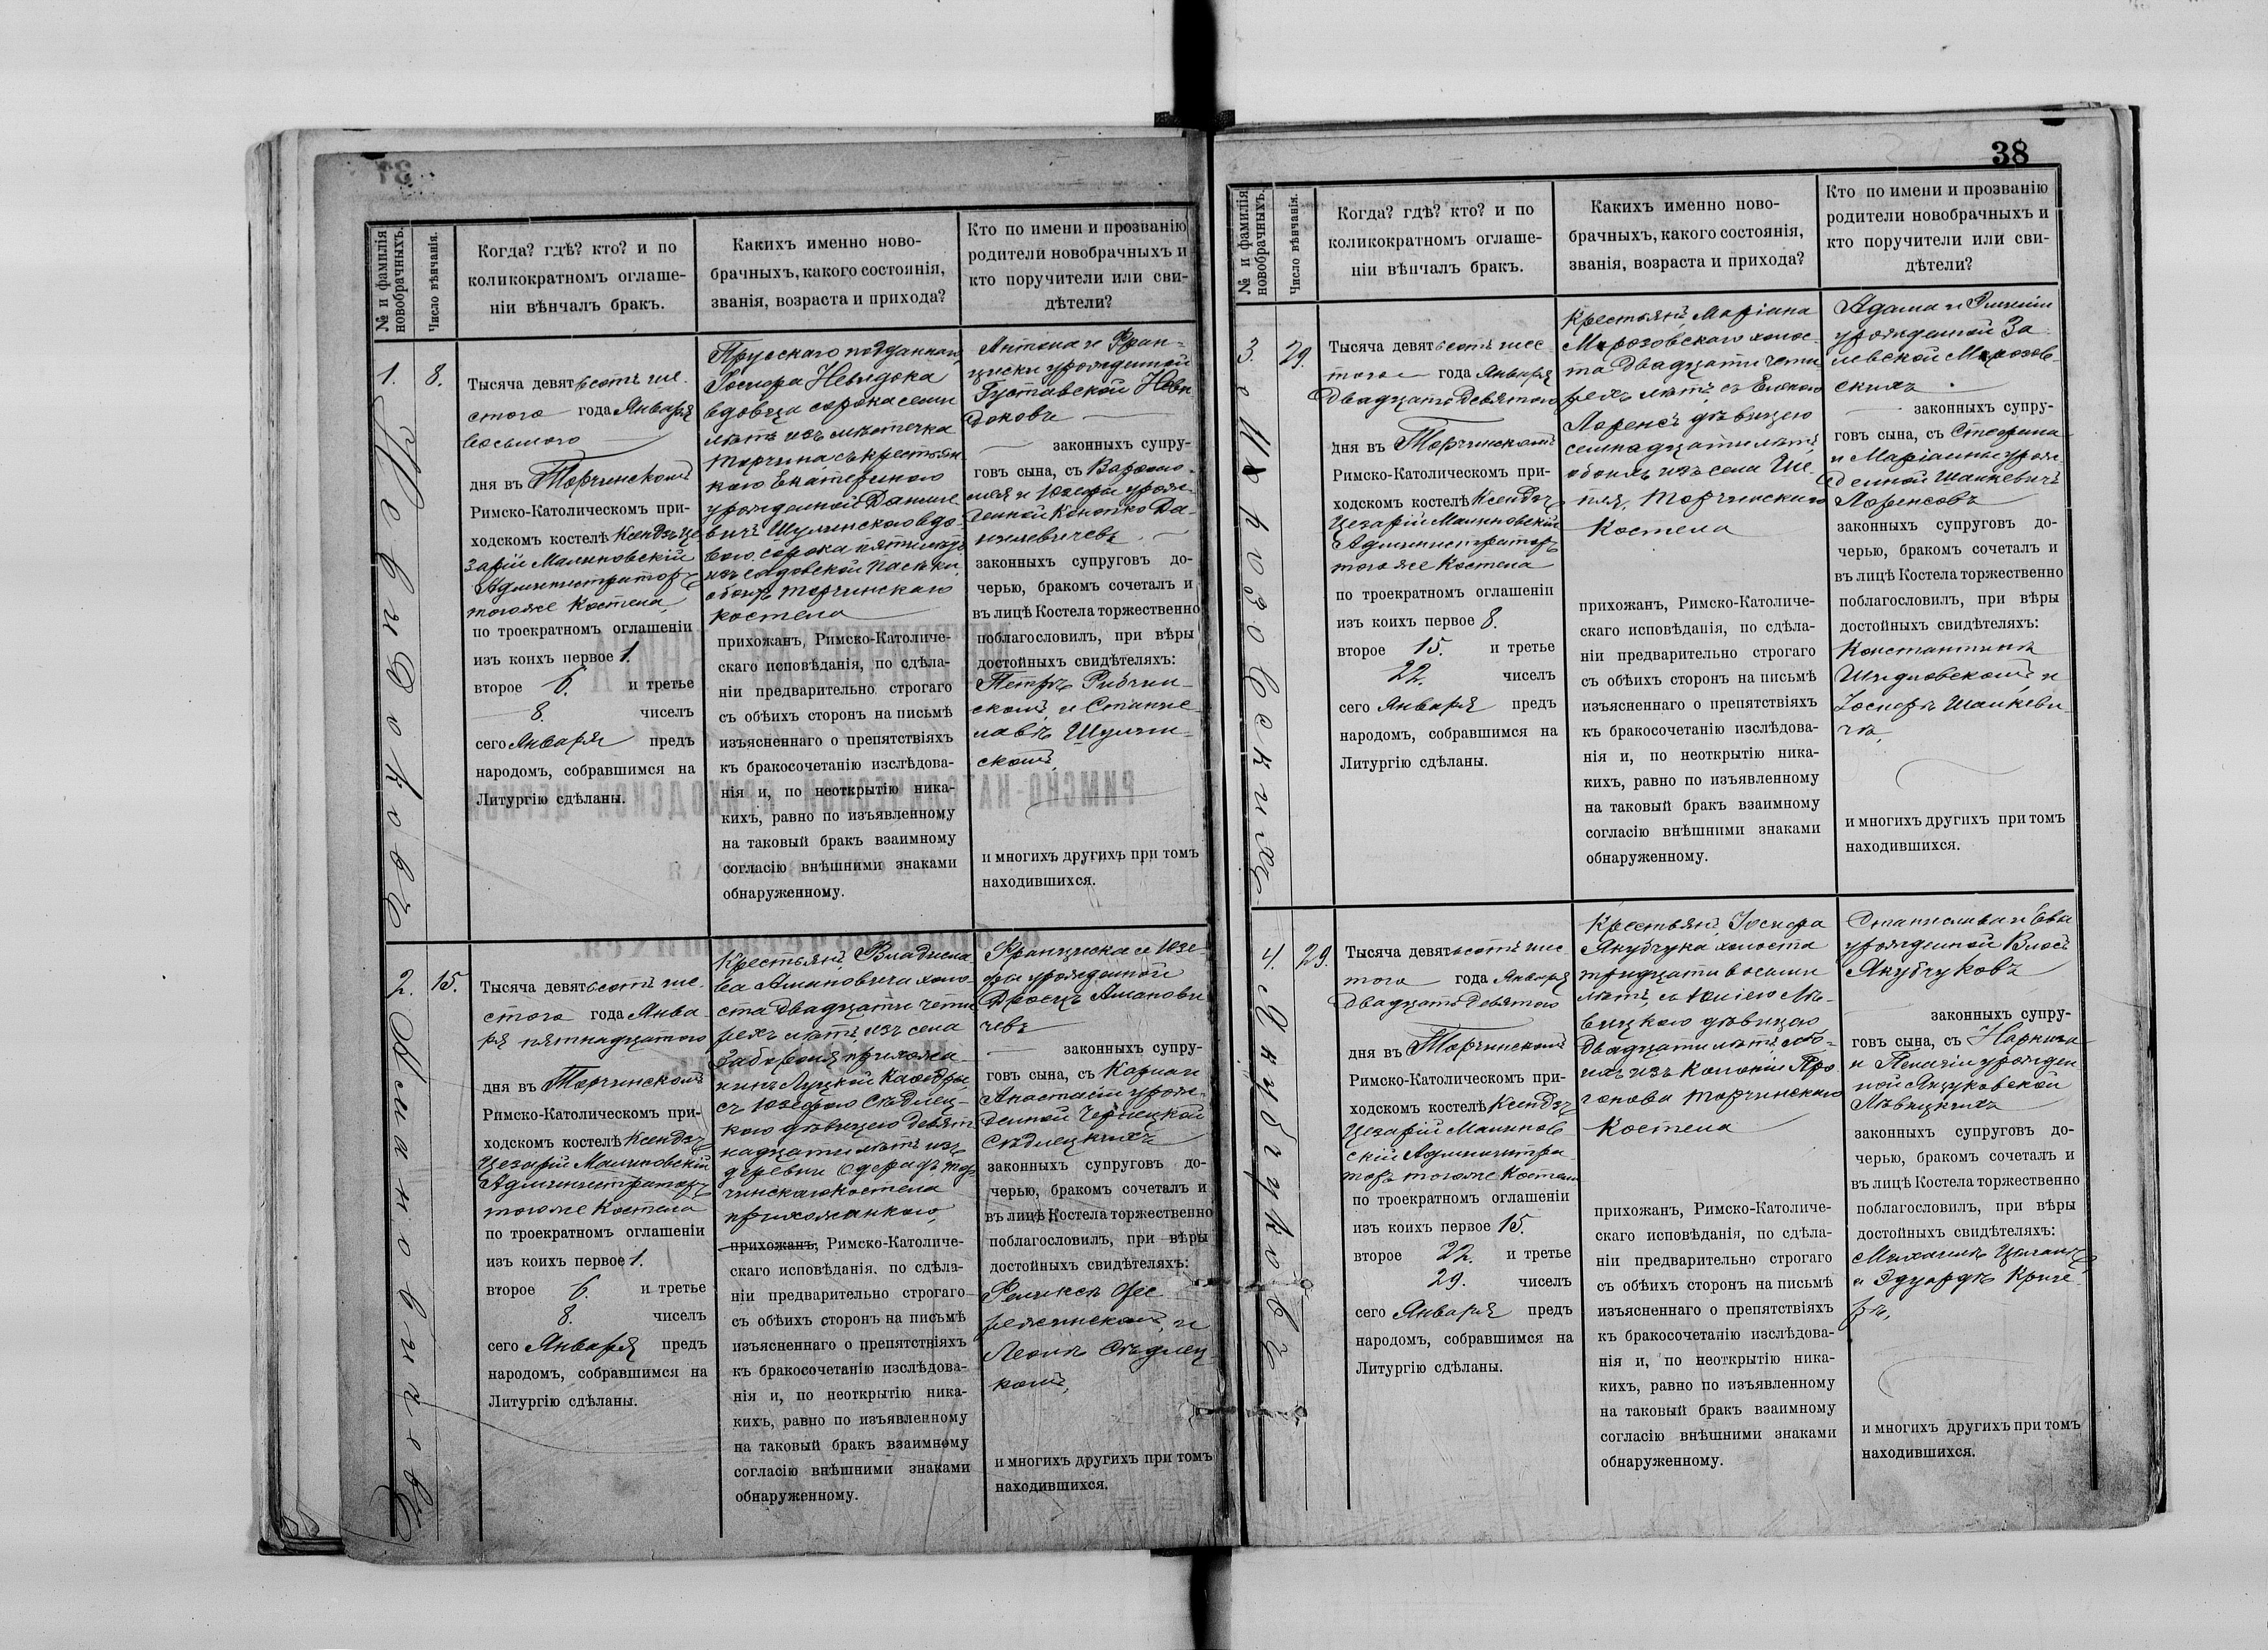 № и фамилія
новобрачныхъ.
Число вѣнчанія.
Когда? гдѣ? кто? и по
коликократномъ оглаше-
ніи вѣнчалъ бракъ.
Какихъ именно ново-
брачныхъ, какого состоянія,
званія, возраста и прихода?
Кто по имени и прозванію
родители новобрачныхъ и
кто поручители или сви-
дѣтели?
1.
8.
Тысяча девятьсотъ ше-
стого года Января
восьмого
дня въ Торчинскомъ
Римско-Католическом при-
ходскомъ костелѣ Ксендзъ Це
зарій Малиновскій
Администраторъ
тогоже Костела
по троекратномъ оглашеніи
изъ коихъ первое 1.
второе 6. и третье
8. чиселъ
сего Января предъ
народомъ, собравшимся на
Литургію сдѣланы.
Прускаго подданнаго
Іосифа Невядока
вдовца сорока семи
лѣтъ изъ мѣстечка
Торчина, съ крестьян
кою Екатериною
урожденной Даниле
вичъ Шулинскою вдо-
вою, сорока пяти лѣтъ
изъ Садовской Пасѣки,
обоихъ Торчинскаго
костела
прихожанъ, Римско-Католиче-
скаго исповѣданія, по сдѣла-
ніи предварительно строгаго
съ обѣихъ сторонъ на письмѣ
изъясненнаго о препятствіяхъ
къ бракосочетанію изслѣдова-
нія и, по неоткрытію ника-
кихъ, равно по изъявленному
на таковый бракъ взаимному
согласію внѣшними знаками
обнаруженному.
Антона и Фран-
циски урожденной
Густавской Невя
доковъ
законныхъ супру-
говъ сына, съ Варфоло-
мея и Юзефы урож-
денной Конопко Да-
нилевичевъ
законныхъ супруговъ до-
черью, бракомъ сочеталъ и
въ лицѣ Костела торжественно
поблагословилъ, при вѣры
достойныхъ свидѣтеляхъ:
Петръ Рибчин-
скомъ, и Станис-
лавѣ Шулин-
скомъ,
и многихъ другихъ при томъ
находившихся.
2.
15.
Амановичевъ
Тысяча девятьсотъ ше-
стого года Янва-
ря пятнадцатого
дня въ Торчинскомъ
Римско-Католическомъ при-
ходскомъ костелѣ Ксендзъ
Цезарій Малиновскій
Администраторъ
тогоже Костела
по троекратномъ оглашеніи
изъ коихъ первое 1.
второе 6. и третье
8. чиселъ
сего Января предъ
народомъ, собравшимся на
Литургію сдѣланы.
Крестьянъ, Владисла
ва Амановича холо-
ста двадцати четы
рехъ лѣтъ изъ села
Забороля прихожа-
нинъ Луцкой Каѳедры
съ Юзефою Сѣдлец-
кою дѣвицею девят
надцати лѣтъ изъ
деревни Одерадъ Тор
чинскаго костела
прихожанкою,
прихожанъ, Римско-Католиче-
скаго исповѣданія, по сдѣла-
ніи предварительно строгаго
съ обѣихъ сторонъ на письмѣ
изъясненнаго о препятствіяхъ
къ бракосочетанію изслѣдова-
нія и, по неоткрытію ника-
кихъ, равно по изъявленному
на таковый бракъ взаимному
согласію внѣшними знаками
обнаруженному.
Франциска и Юзе-
фы урожденной
Аманови
чевъ
законныхъ супру-
говъ сына, съ Карла и
Анастасіи урож-
денной Чернецкой
Сѣдлецкихъ
законныхъ супруговъ до-
черью, бракомъ сочеталъ и
въ лицѣ Костела торжественно
поблагословилъ, при вѣры
достойныхъ свидѣтеляхъ:
Феликсѣ
и
Леонѣ Сѣдлец-
комъ,
и многихъ другихъ при томъ
находившихся.
38
№ и фамилія
новобрачныхъ.
Число вѣнчанія.
Когда? гдѣ? кто? и по
коликократномъ оглаше-
ніи вѣнчалъ бракъ.
Какихъ именно ново-
брачныхъ, какого состоянія,
званія, возраста и прихода?
Кто по имени и прозванію
родители новобрачныхъ и
кто поручители или сви-
дѣтели?
3.
29.
Тысяча девятьсотъ шес
того года Января
двадцать девятого
дня въ Торчинскомъ
Римско-Католическомъ при-
ходскомъ костелѣ Ксендзъ
Цезарій Малиновскій
Администраторъ
тогоже Костела
по троекратномъ оглашеніи
изъ коихъ первое 8.
второе 15. и третье
22. чиселъ
сего Января предъ
народомъ, собравшимся на
Литургію сдѣланы.
Крестьянъ, Маріана
Морозовскаго холос-
та двадцати четы
рехъ лѣтъ, съ Еленою
Лоренсъ дѣвицею
семнадцати лѣтъ,
обоихъ изъ села Ше
пля, Торчинскаго
Костела
прихожанъ, Римско-Католиче-
скаго исповѣданія, по сдѣла-
ніи предварительно строгаго
съ обѣихъ сторонъ на письмѣ
изъясненнаго о препятствіяхъ
къ бракосочетанію изслѣдова-
нія и, по неоткрытію ника-
кихъ, равно по изъявленному
на таковый бракъ взаимному
согласію внѣшними знаками
обнаруженному.
Адама и Эмиліи
урожденной За
левской Морозов-
скихъ
законныхъ супру-
говъ сына, съ Стефана
и Маріанны урож-
денной Шанкевичъ
Лоренсовъ
законныхъ супруговъ до-
черью, бракомъ сочеталъ и
въ лицѣ Костела торжественно
поблагословилъ, при вѣры
достойныхъ свидѣтеляхъ:
Константинѣ
Шидловскомъ, и
Іосифѣ Шанкеви-
чѣ,
и многихъ другихъ при томъ
находившихся.
4.
29.
Якубчуковъ
Тысяча девятьсотъ шес
того года Января
двадцать девятого
дня въ Торчинскомъ
Римско-Католическомъ при-
ходскомъ костелѣ Ксендзъ
Цезарій Малинов-
скій Администра-
торъ тогоже Костела
по троекратномъ оглашеніи
изъ коихъ первое 15.
второе 22. и третье
29. чиселъ
сего Января предъ
народомъ, собравшимся на
Литургію сдѣланы.
Крестьянъ, Іосифа
Якубчука холоста
тридцати восьми
лѣтъ, съ Юліею Лѣ-
вицкою дѣвицею
двадцати лѣтъ, обо-
ихъ изъ колоніи
Торчинскаго
Костела
прихожанъ, Римско-Католиче-
скаго исповѣданія, по сдѣла-
ніи предварительно строгаго
съ обѣихъ сторонъ на письмѣ
изъясненнаго о препятствіяхъ
къ бракосочетанію изслѣдова-
нія и, по неоткрытію ника-
кихъ, равно по изъявленному
на таковый бракъ взаимному
согласію внѣшними знаками
обнаруженному.
Станислава и Евы
урожденной
Якубчуковъ
законныхъ супру-
говъ сына, съ
и урожден
ной Янчуковской
Лѣвицкихъ
законныхъ супруговъ до-
черью, бракомъ сочеталъ и
въ лицѣ Костела торжественно
поблагословилъ, при вѣры
достойныхъ свидѣтеляхъ:
Михаилѣ
и Эдуардѣ
и многихъ другихъ при томъ
находившихся.